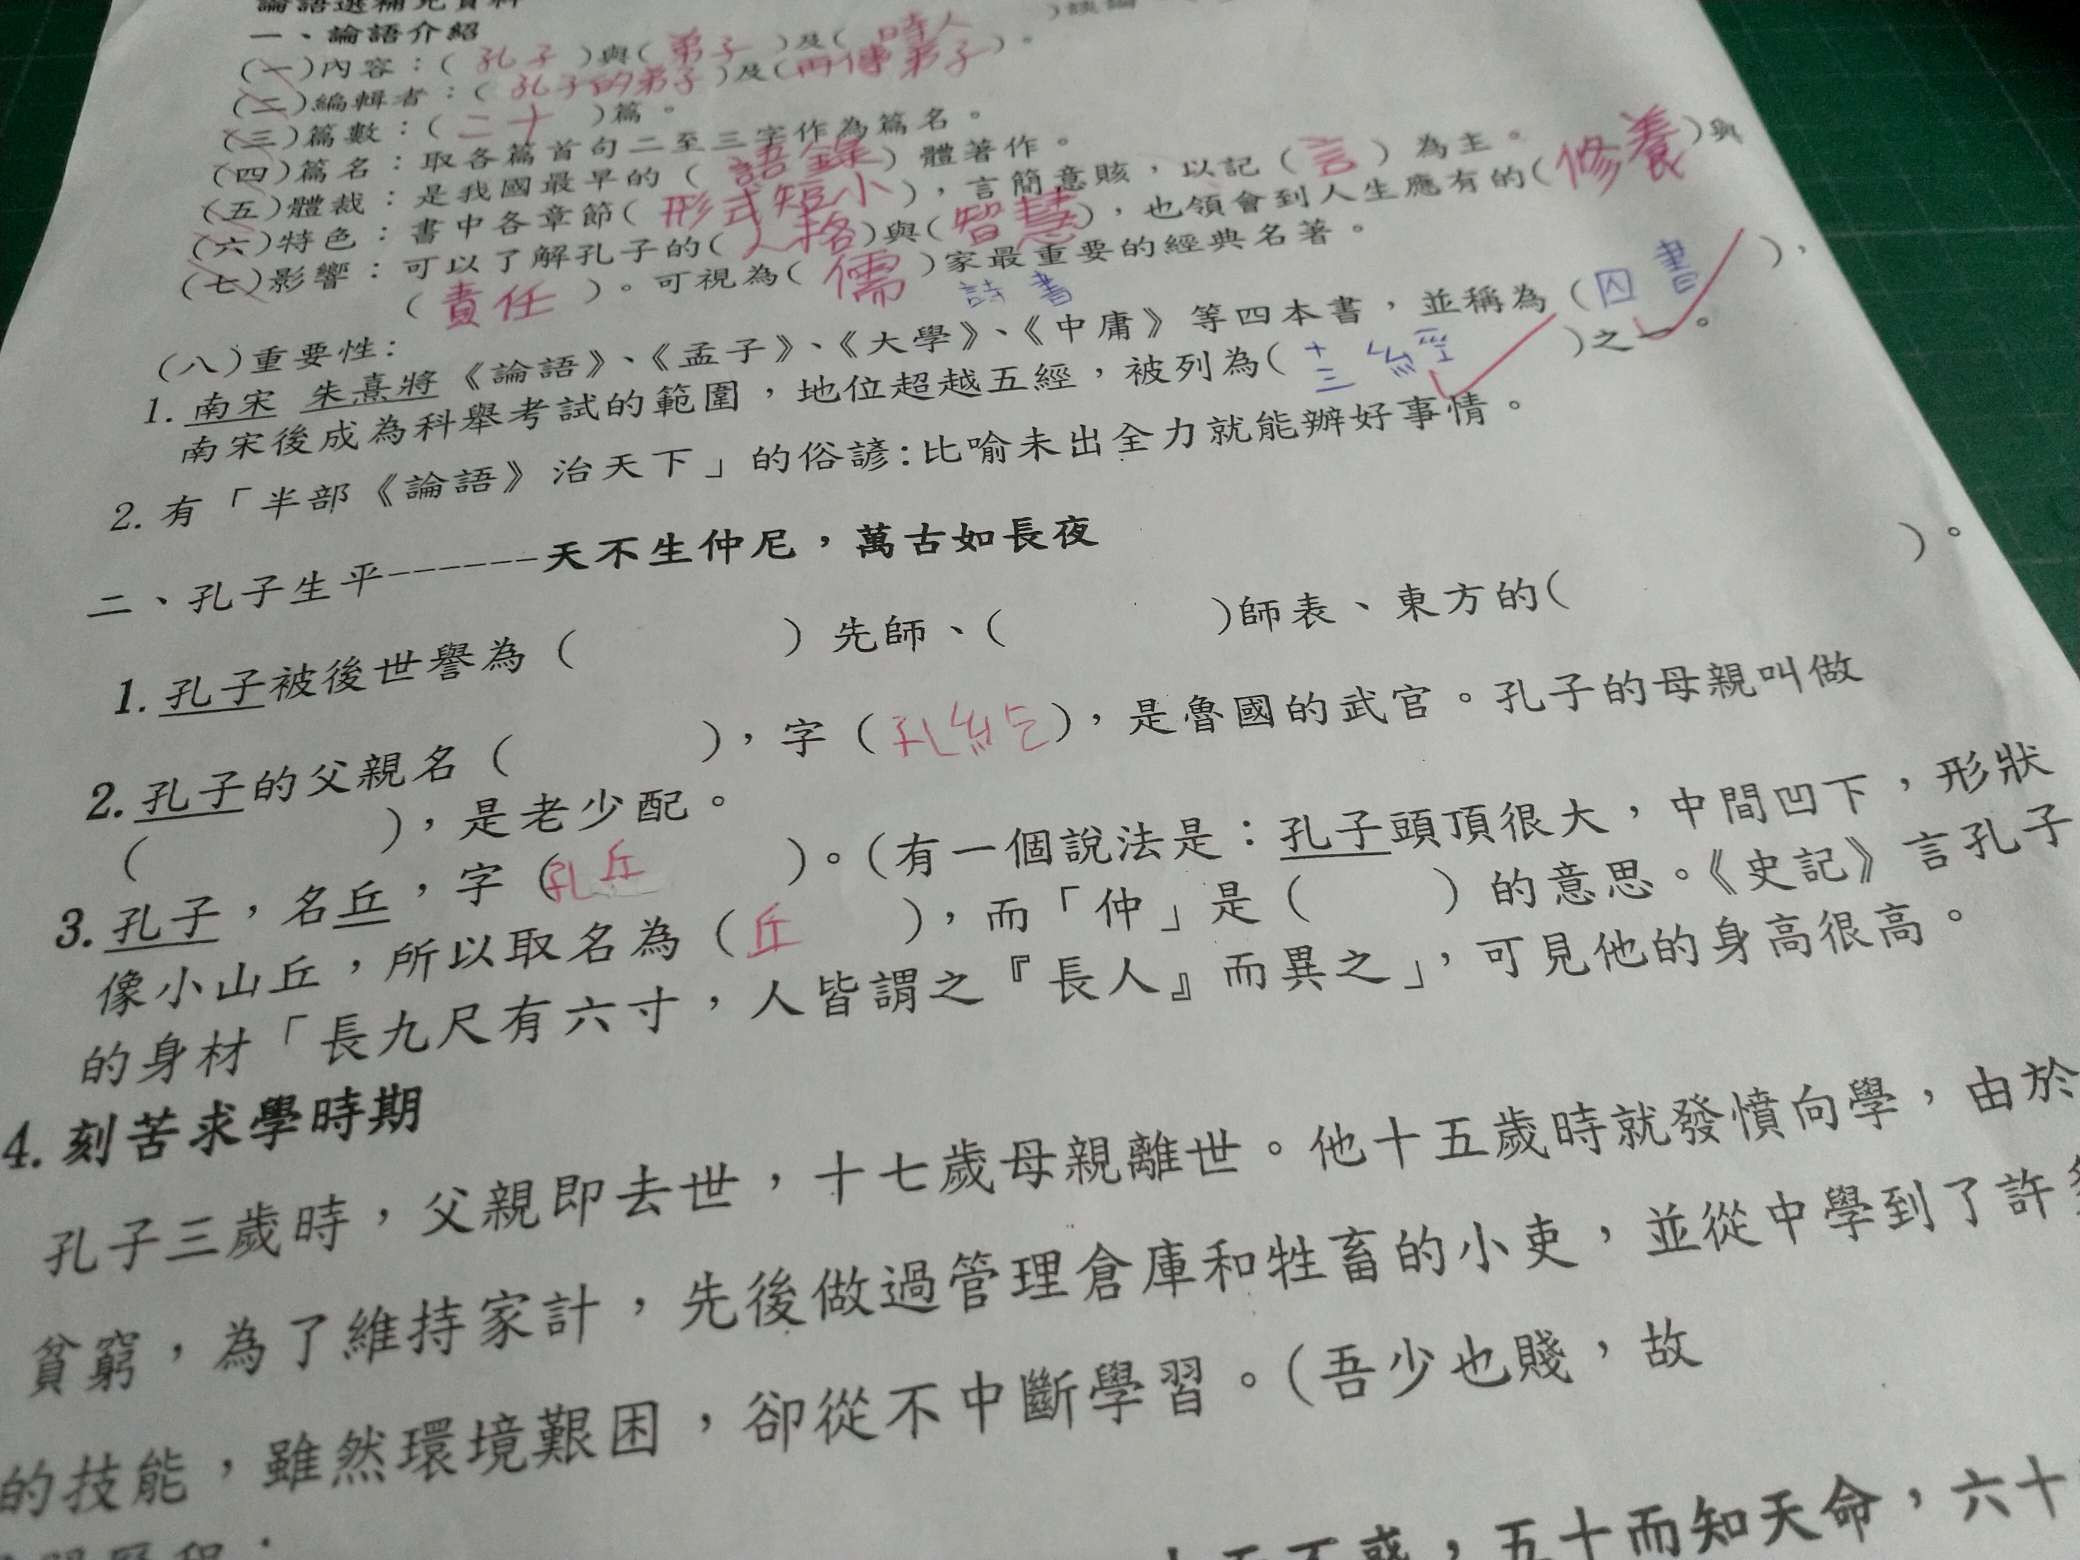 論語選補充資料
一、論語介紹
(一)內容：( 孔子 )與( 弟子 )及( 時人 )談論
(二)編輯者：( 孔子的弟子 )及( 再傳弟子 )。
(三)篇數：( 二十 )篇。
(四)篇名：取各篇首句二至三字作為篇名。
(五)體裁：是我國最早的( 語錄 ) 體著作。
(六)特色：書中各章節( 形式短小 )，言簡意賅，以記( 言 ) 為主。
(七)影響：可以了解孔子的( 人格 )與( 智慧 )，也領會到人生應有的( 修養 )與
( 責任 )。可視為( 儒 )家最重要的經典名著。
詩書
(八)重要性：
1. 南宋 朱熹將《論語》、《孟子》、《大學》、《中庸》等四本書，並稱為 ( 四書 )，
南宋後成為科舉考試的範圍，地位超越五經，被列為( 十三經 )之一。
2. 有「半部《論語》治天下」的俗諺：比喻未出全力就能辦好事情。
二、孔子生平------天不生仲尼，萬古如長夜
1. 孔子被後世譽為 ( ) 先師、( )師表、東方的( )。
2. 孔子的父親名 ( )，字 ( 孔紇 )，是魯國的武官。孔子的母親叫做
( )，是老少配。
3. 孔子，名丘，字 ( 孔丘 )。(有一個說法是：孔子頭頂很大，中間凹下，形狀
像小山丘，所以取名為 ( 丘 )，而「仲」是 ( ) 的意思。《史記》言孔子
的身材「長九尺有六寸，人皆謂之『長人』而異之」，可見他的身高很高。
4. 刻苦求學時期
孔子三歲時，父親即去世，十七歲母親離世。他十五歲時就發憤向學，由於
貧窮，為了維持家計，先後做過管理倉庫和牲畜的小吏，並從中學到了許多
的技能，雖然環境艱困，卻從不中斷學習。(吾少也賤，故
而不惑，五十而知天命，六十